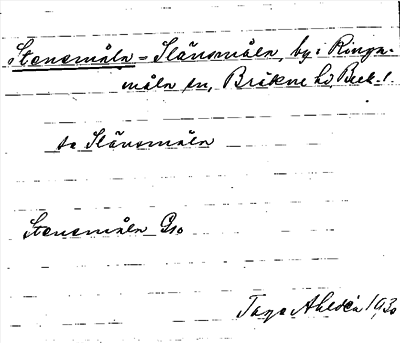 Stensmåla = Slänsmåla, by i Ringa-
måla sn, Bräkne hd, Blek. l.
se Slänsmåla
Stensmåla Gs.
Tage Ahldén 1930